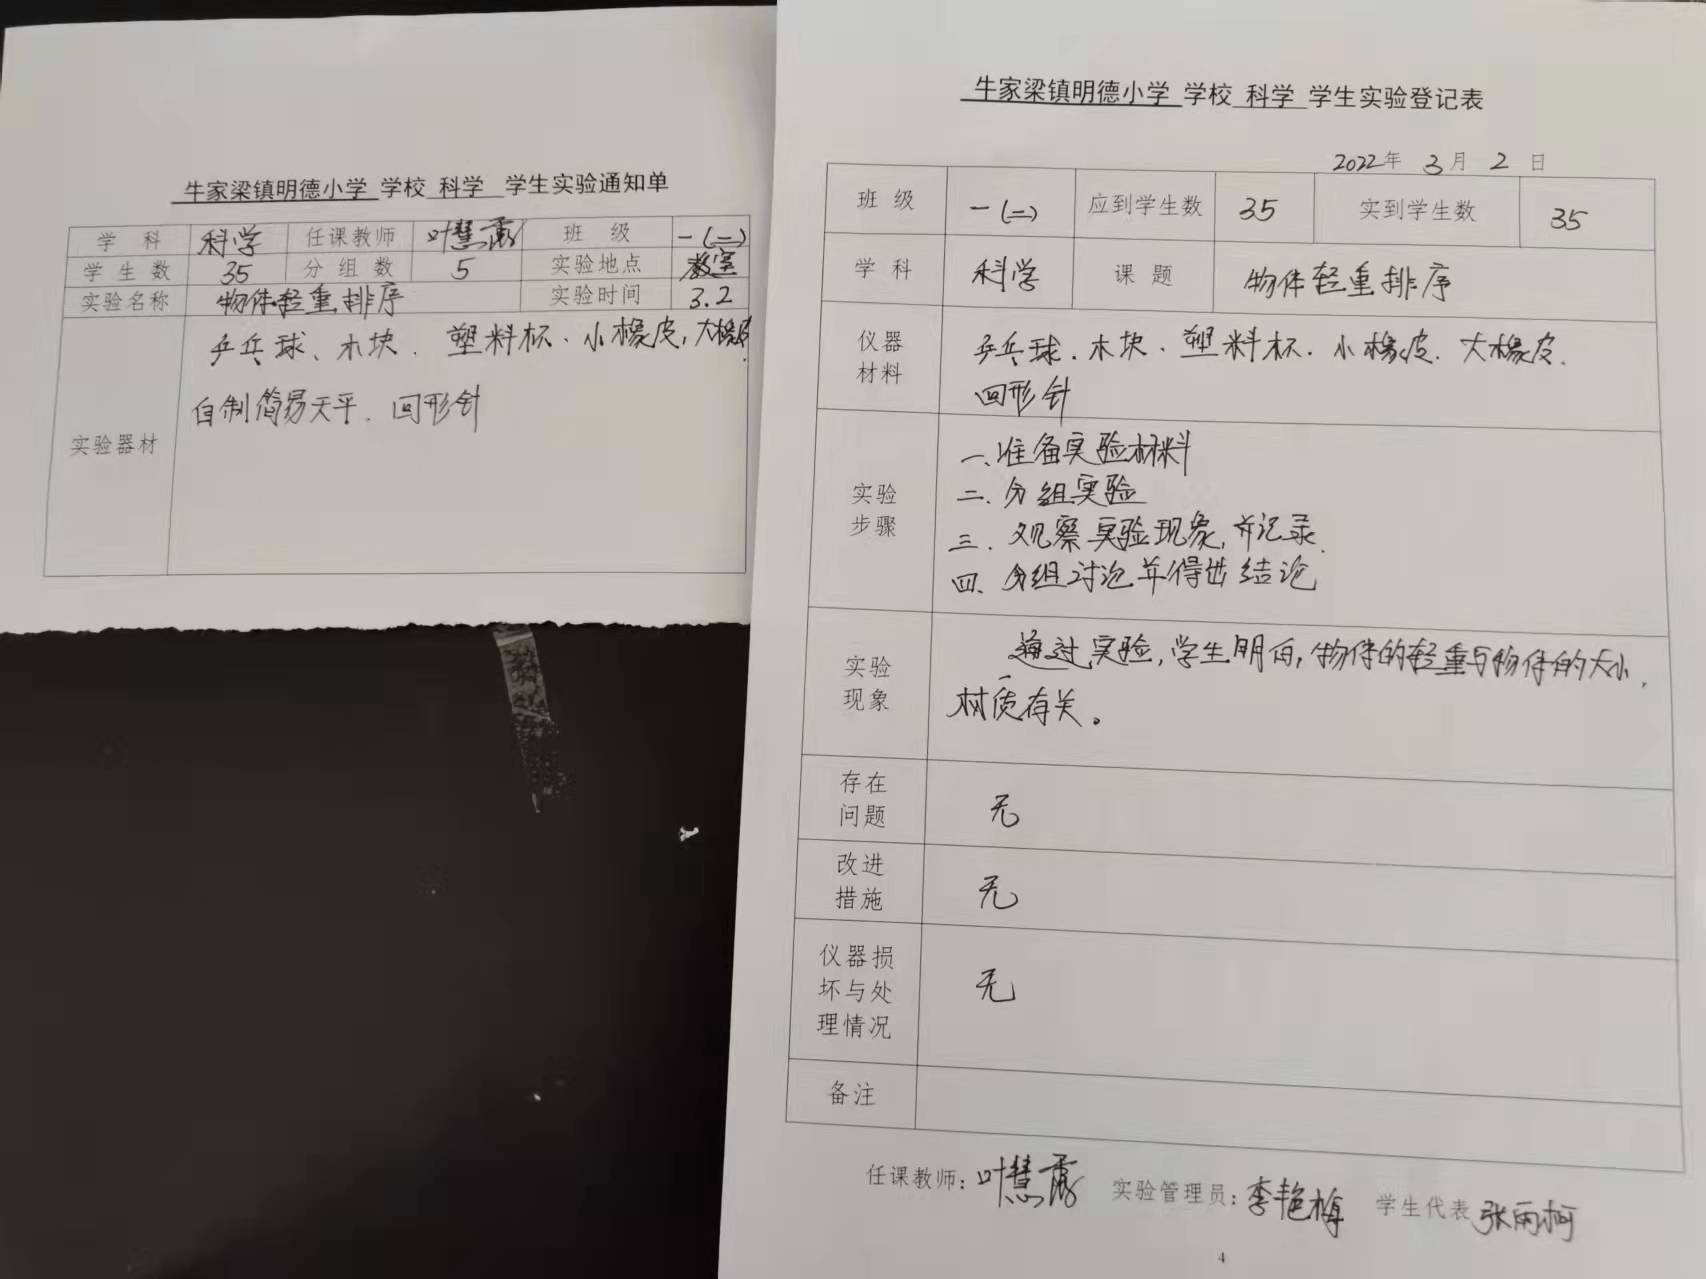 牛家梁镇明德小学 学校 科学 学生实验通知单
学科 科学 任课教师 叶慧露 班级 一(二)
学生数 35 分组数 5 实验地点 教室
实验名称 物体轻重排序 实验时间 3.2
实验器材 乒乓球、木块、塑料杯、小橡皮,大橡皮
自制简易天平、回形针
牛家梁镇明德小学 学校 科学 学生实验登记表
2022年 3月 2日
班级 一(二) 应到学生数 35 实到学生数 35
学科 科学 课题 物体轻重排序
仪器材料 乒乓球、木块、塑料杯、小橡皮、大橡皮、
回形针
实验步骤 一、准备实验材料
二、分组实验
三、观察实验现象,并记录、
四、分组讨论并得出结论
实验现象 通过实验,学生明白,物体的轻重与物体的大小、
材质有关。
存在问题 无
改进措施 无
仪器损坏与处理情况 无
备注
任课教师:叶慧露 实验管理员:李艳梅 学生代表 张雨柯
4